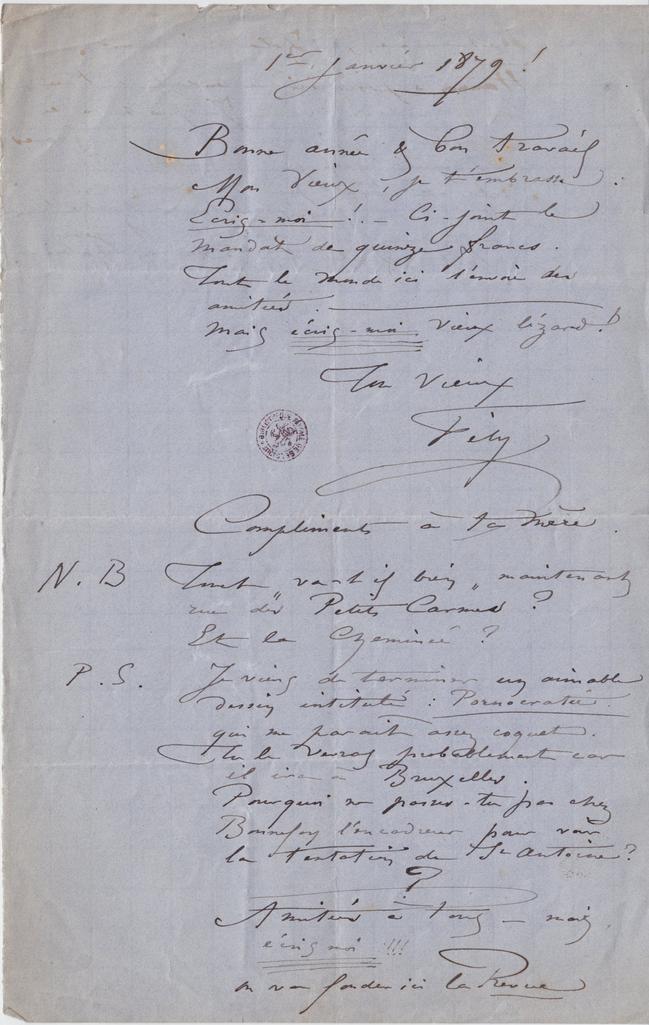 1er Janvier 1879 !
Bonne année & bon travail
Mon Vieux, je t'embrasse.
Ecris-moi ! – Ci-joint le
mandat de quinze francs.
Tout le monde ici t'envoie des
amitiés.
Mais écris-moi vieux lézard !
Ton vieux
Fély
Compliments à ta mère.
N. B Tout va-t-il bien, maintenant
rue des Petits Carmes ?
Et la Cheminée ?
P. S. Je viens de terminer un aimable
dessin intitulé : Pornocratie
qui me parait assez coquet.
Tu le verras probablement car
il ira à Bruxelles.
Pourquoi ne passes-tu pas chez
Bonnefoy l'encadreur pour voir
la tentation de St Antoine ?
?
Amitiés à tous – mais
écris moi !!!
on va fonder ici la Revue